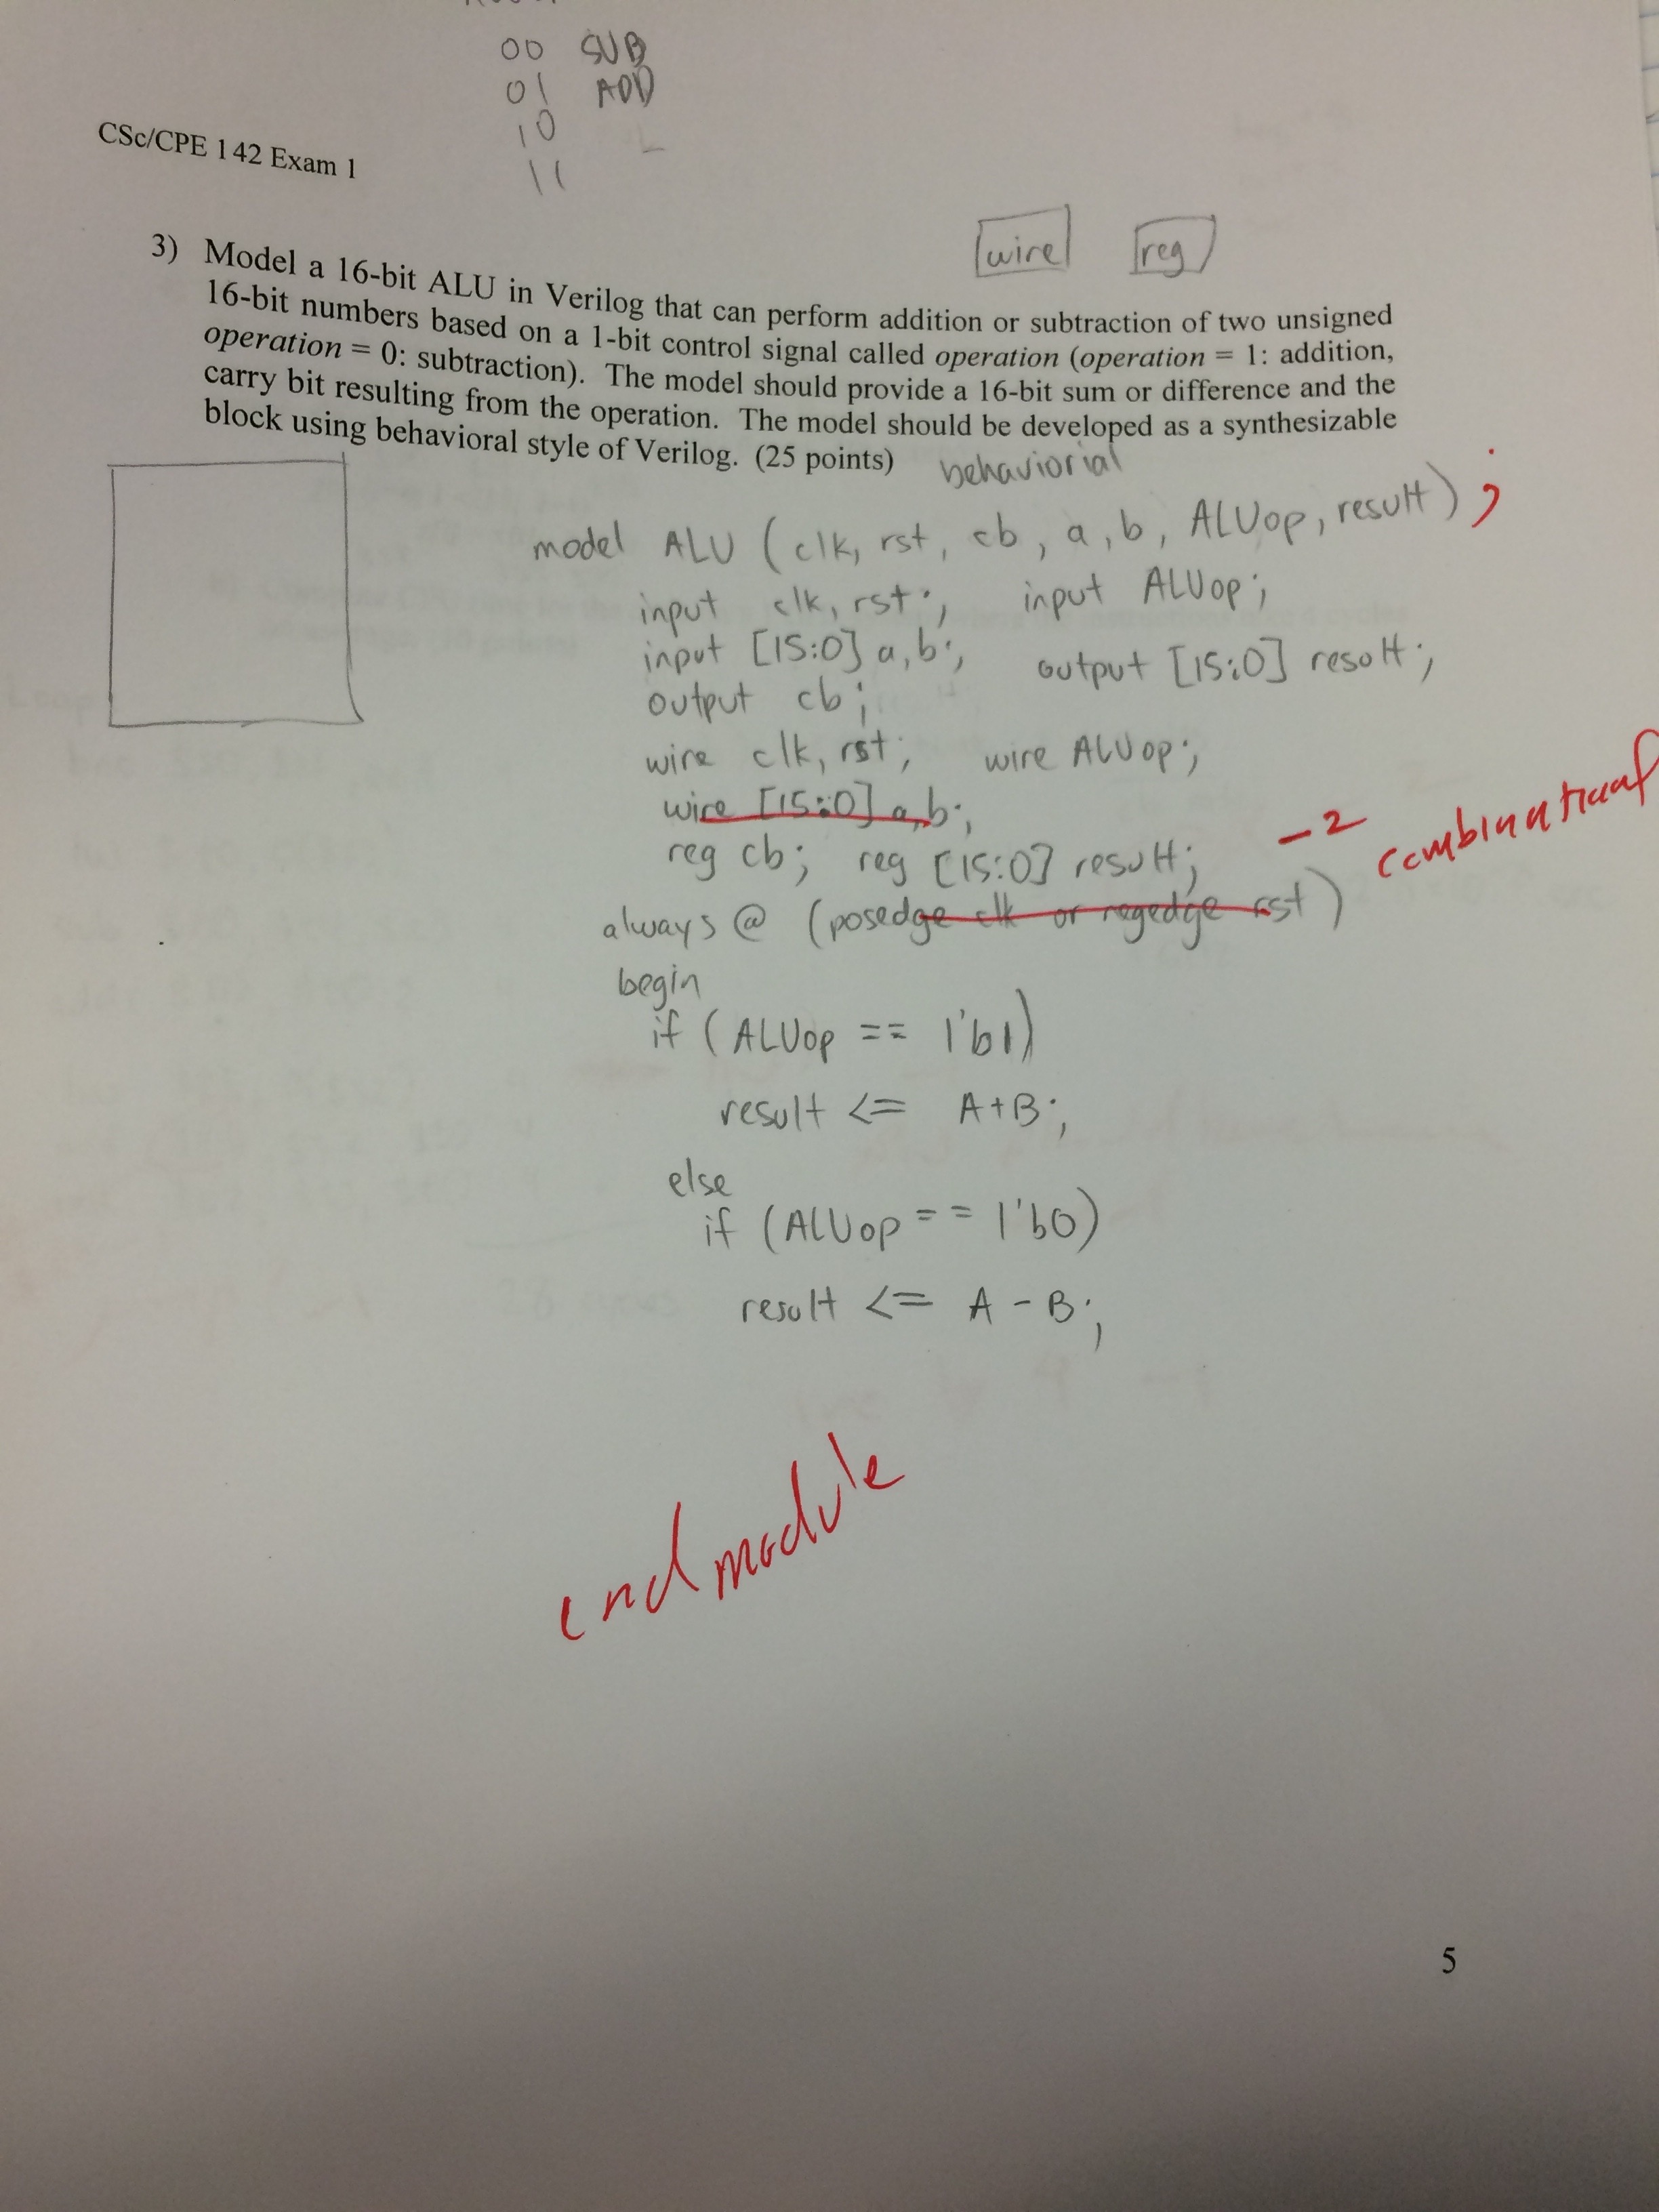 00 SUB
01 ADD
10
11
CSc/CPE 142 Exam 1
wire reg
3) Model a 16-bit ALU in Verilog that can perform addition or subtraction of two unsigned
16-bit numbers based on a 1-bit control signal called operation (operation = 1: addition,
operation = 0: subtraction). The model should provide a 16-bit sum or difference and the
carry bit resulting from the operation. The model should be developed as a synthesizable
block using behavioral style of Verilog. (25 points)
behaviorial
model ALU (clk, rst, cb, a, b, ALUop, result) ;
input clk, rst; input ALUop;
input [15:0] a, b; output [15:0] result;
output cb;
wire clk, rst; wire ALUop;
wire [15:0] a,b;
reg cb; reg [15:0] result;
-2 combinational
always @ (posedge clk or regedge rst)
begin
if (ALUop == 1'b1)
result <= A+B;
else
if (ALUop == 1'b0)
result <= A - B;
endmodule
5